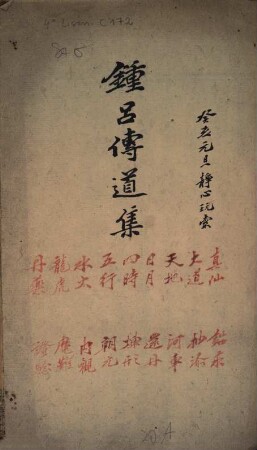 癸亥元旦靜心玩索
鍾呂傳道集
真仙
大道
天地
日月
四時
五行
水火
龍虎
丹藥
鉛汞
抽添
河車
還丹
煉形
朝元
內觀
魔難
證驗